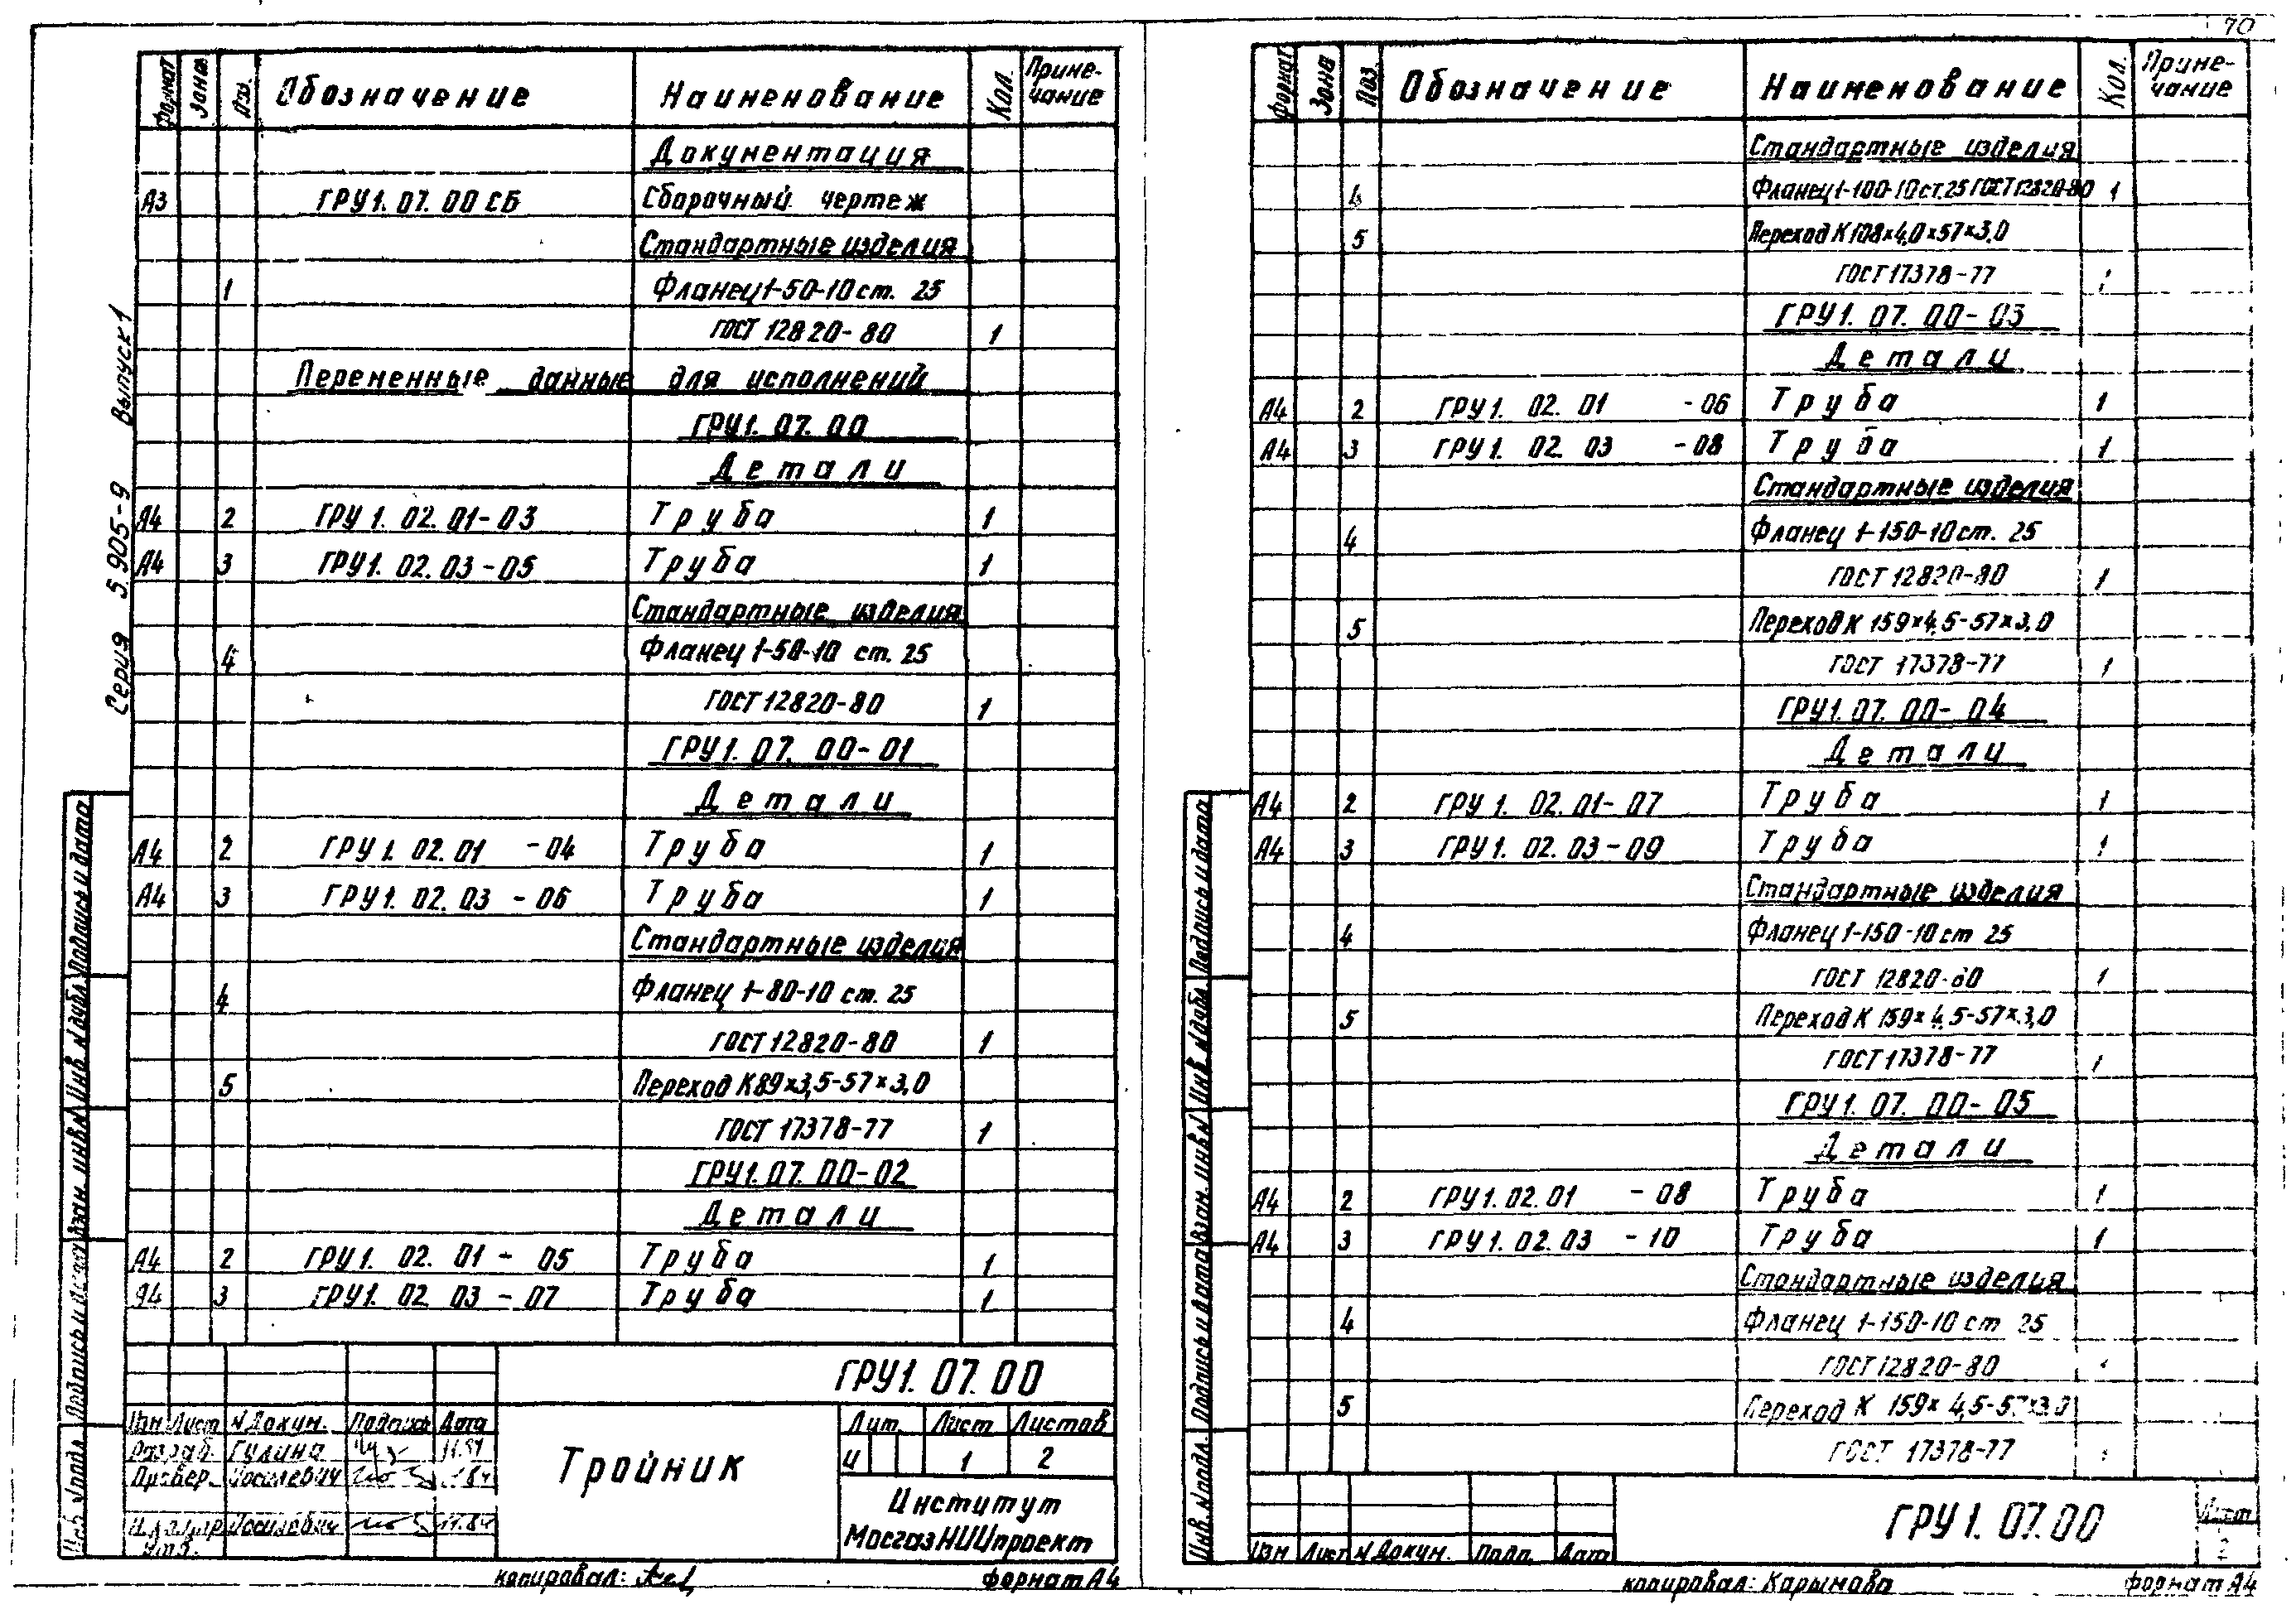 70
Серия 5.905-9 Выпуск 1
Формат Зона Поз. Обозначение Наименование Кол. Приме-
чание
Документация
А3 ГРУ1.07.00 СБ Сборочный чертеж
Стандартные изделия
1 Фланец 1-50-10 ст. 25
ГОСТ 12820-80 1
Переменные данные для исполнений
ГРУ1.07.00
Детали
А4 2 ГРУ1.02.01-03 Труба 1
А4 3 ГРУ1.02.03-05 Труба 1
Стандартные изделия
4 Фланец 1-50-10 ст. 25
ГОСТ 12820-80 1
ГРУ1.07.00-01
Детали
А4 2 ГРУ1.02.01 -04 Труба 1
А4 3 ГРУ1.02.03 -06 Труба 1
Стандартные изделия
4 Фланец 1-80-10 ст. 25
ГОСТ 12820-80 1
5 Переход К89×3,5-57×3,0
ГОСТ 17378-77 1
ГРУ1.07.00-02
Детали
А4 2 ГРУ1.02.01 - 05 Труба 1
А4 3 ГРУ1.02.03 - 07 Труба 1
Подпись и дата
Инв. № дубл.
Взам. инв. №
Подпись и дата
Инв. № подл.
ГРУ1.07.00
Изм Лист № Докум. Подпись Дата
Разраб. Гулина 11.84
Провер. Иоселевич 11.84
Н.контр Иоселевич 11.84
Утв.
Тройник
Лит. Лист Листов
И 1 2
Институт
МосгазНИИпроект
копировал:
формат А4
Формат Зона Поз. Обозначение Наименование Кол. Приме-
чание
Стандартные изделия
4 Фланец 1-100-10 ст.25 ГОСТ 12820-80 1
5 Переход К108×4,0×57×3,0
ГОСТ 17378-77 1
ГРУ1.07.00-03
Детали
А4 2 ГРУ1.02.01 -06 Труба 1
А4 3 ГРУ1.02.03 -08 Труба 1
Стандартные изделия
4 Фланец 1-150-10 ст. 25
ГОСТ 12820-80 1
5 Переход К 159×4,5-57×3,0
ГОСТ 17378-77 1
ГРУ1.07.00-04
Детали
А4 2 ГРУ1.02.01-07 Труба 1
А4 3 ГРУ1.02.03-09 Труба 1
Стандартные изделия
4 Фланец 1-150-10 ст 25
ГОСТ 12820-80 1
5 Переход К 159×4,5-57×3,0
ГОСТ 17378-77 1
ГРУ1.07.00-05
Детали
А4 2 ГРУ1.02.01 -08 Труба 1
А4 3 ГРУ1.02.03 -10 Труба 1
Стандартные изделия
4 Фланец 1-150-10 ст 25
ГОСТ 12820-80 1
5 Переход К 159×4,5-57×3,0
ГОСТ 17378-77 1
Подпись и дата
Инв. № дубл.
Взам. инв. №
Подпись и дата
Инв. № подл.
Изм Лист № Докум. Подп. Дата
ГРУ1.07.00
Лист
2
копировал: Карымова
формат А4